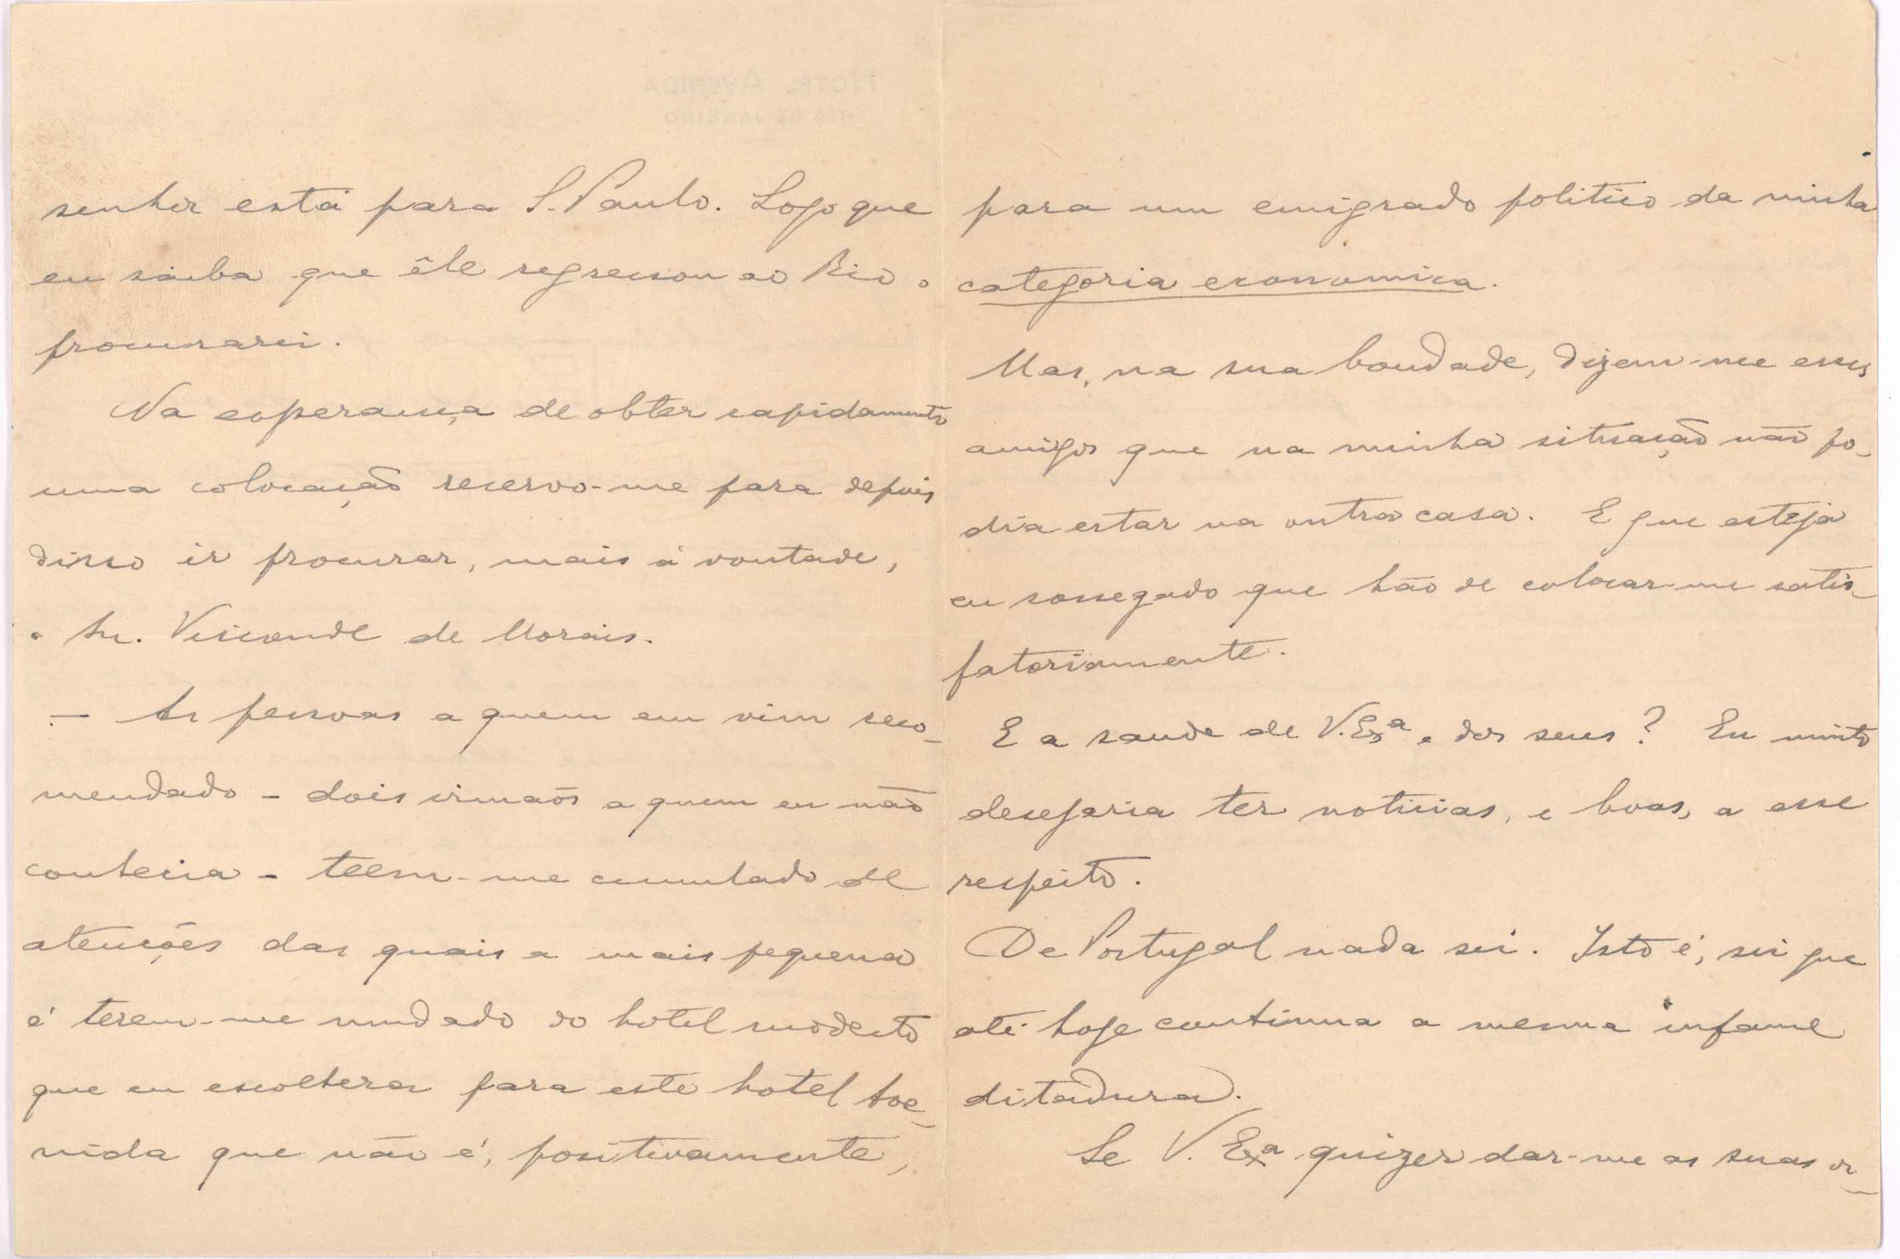 senhor está para S. Paulo. Logo que
eu saiba que êle regressou ao Rio o
procurarei.
Na esperança de obter rapidamente
uma colocação reservo-me para depois
disso ir procurar, mais á vontade,
o Sr. Visconde de Morais.
— As pessoas a quem eu vim reco-
mendado - dois irmãos a quem eu não
conhecia - teem-me cumulado de
atenções das quais a mais pequena
é terem-me mudado do hotel modesto
que eu escolhera para este hotel Ave-
nida que não é, positivamente,
para um emigrado politico da minha
categoria economica.
Mas, na sua bondade, dizem-me esses
amigos que na minha situação não po-
dia estar na outra casa. E que esteja
eu sossegado que hão de colocar-me satis-
fatoriamente.
E a saude de V. Exª e dos seus? Eu muito
desejaria ter noticias, e boas, a esse
respeito.
De Portugal nada sei. Isto é, sei que
até hoje continua a mesma infame
ditadura.
Se V. Exª quizer dar-me as suas or-